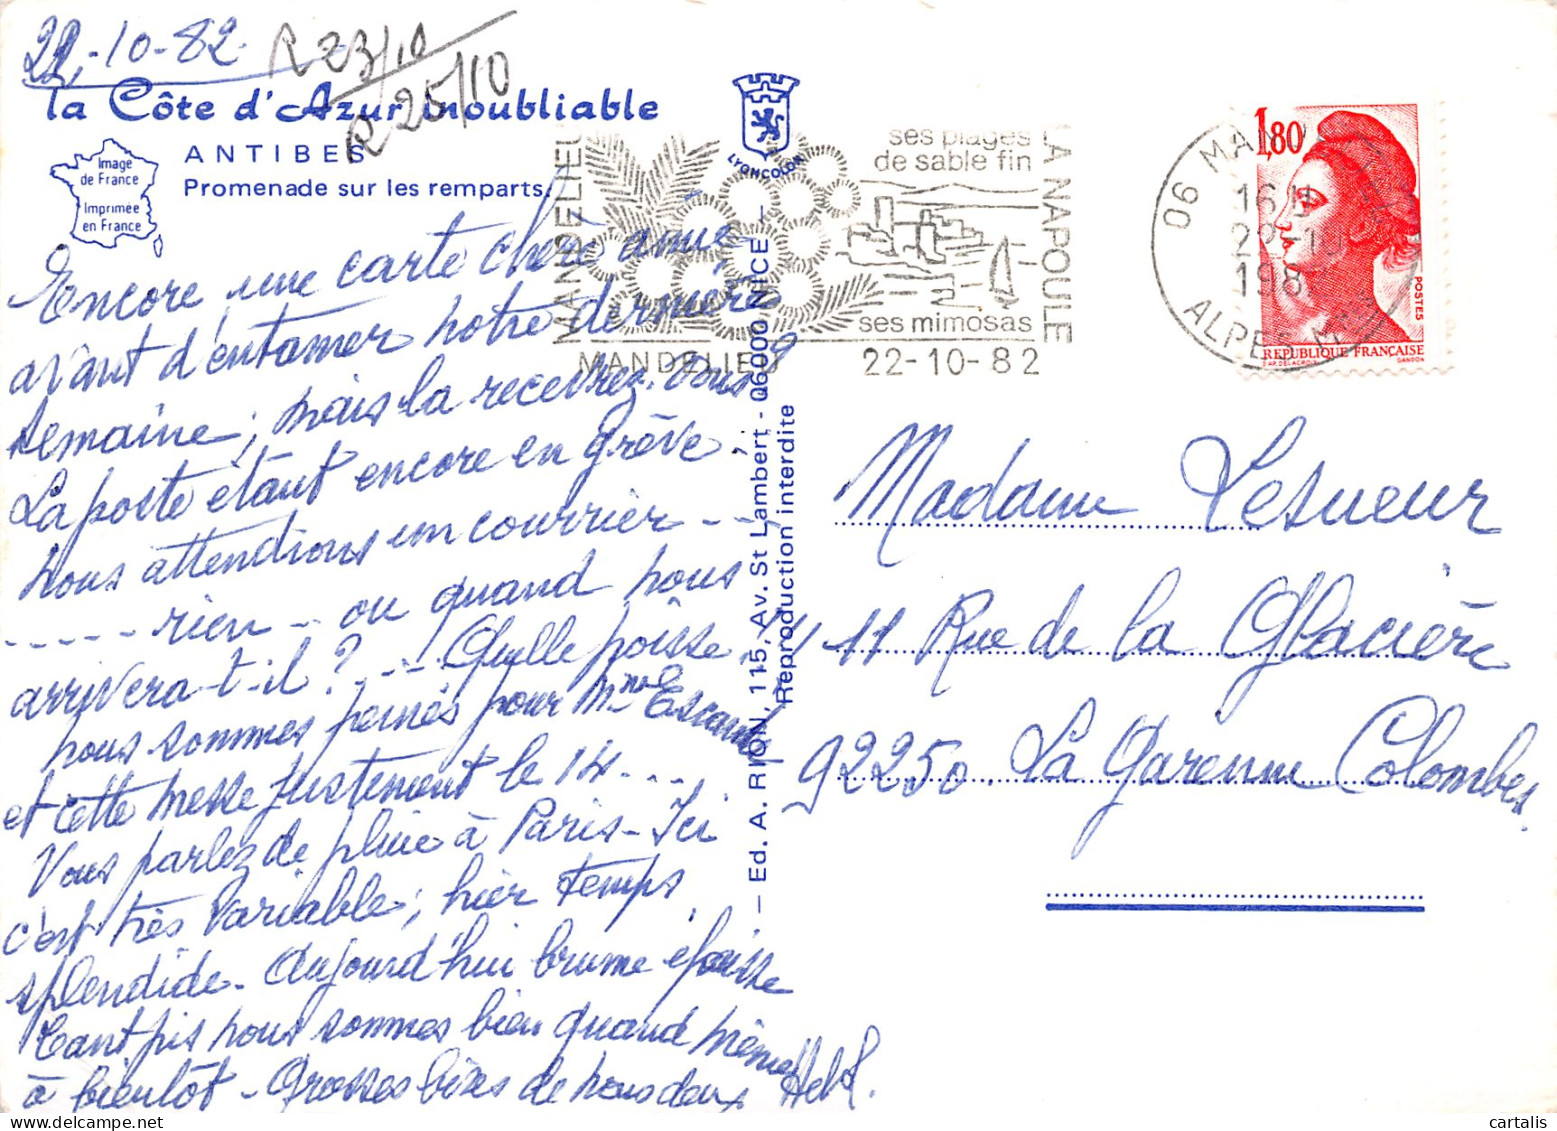 22-10-82
R 23/10
R 25/10
la Côte d'Azur inoubliable
Image
de France
Imprimée
en France
ANTIBES
Promenade sur les remparts.
Encore une carte chère amie
avant d'entamer notre dernière
semaine; mais la recevrez-vous?
La poste étant encore en grève,
nous attendions un courrier - -
- - - - - rien - ou quand nous
arrivera-t-il? - - - Quelle poisse.
nous sommes peinés pour Mme
et cette messe justement le 14 - - -
Vous parlez de pluie à Paris - Ici
c'est très variable; hier temps
splendide - Aujourd'hui brume épaisse
tant pis nous sommes bien quand même
à bientôt - Grosses bises de nous deux
H et L.
LYONCOLOR
— Ed. A. RION, 115, Av. St Lambert - 06000 NICE —
Reproduction interdite
MANDELIEU
ses plages
de sable fin
ses mimosas
LA NAPOULE
MANDELIEU 22-10-82
06 MAN
16 H
22-10
198
ALPES M
1,80
POSTES
REPUBLIQUE FRANÇAISE
D'AP. DELACROIX
GANDON
Madame Lesueur
11 Rue de la Glacière
92250. La Garenne Colombes.
© cartalis
delcampe.net